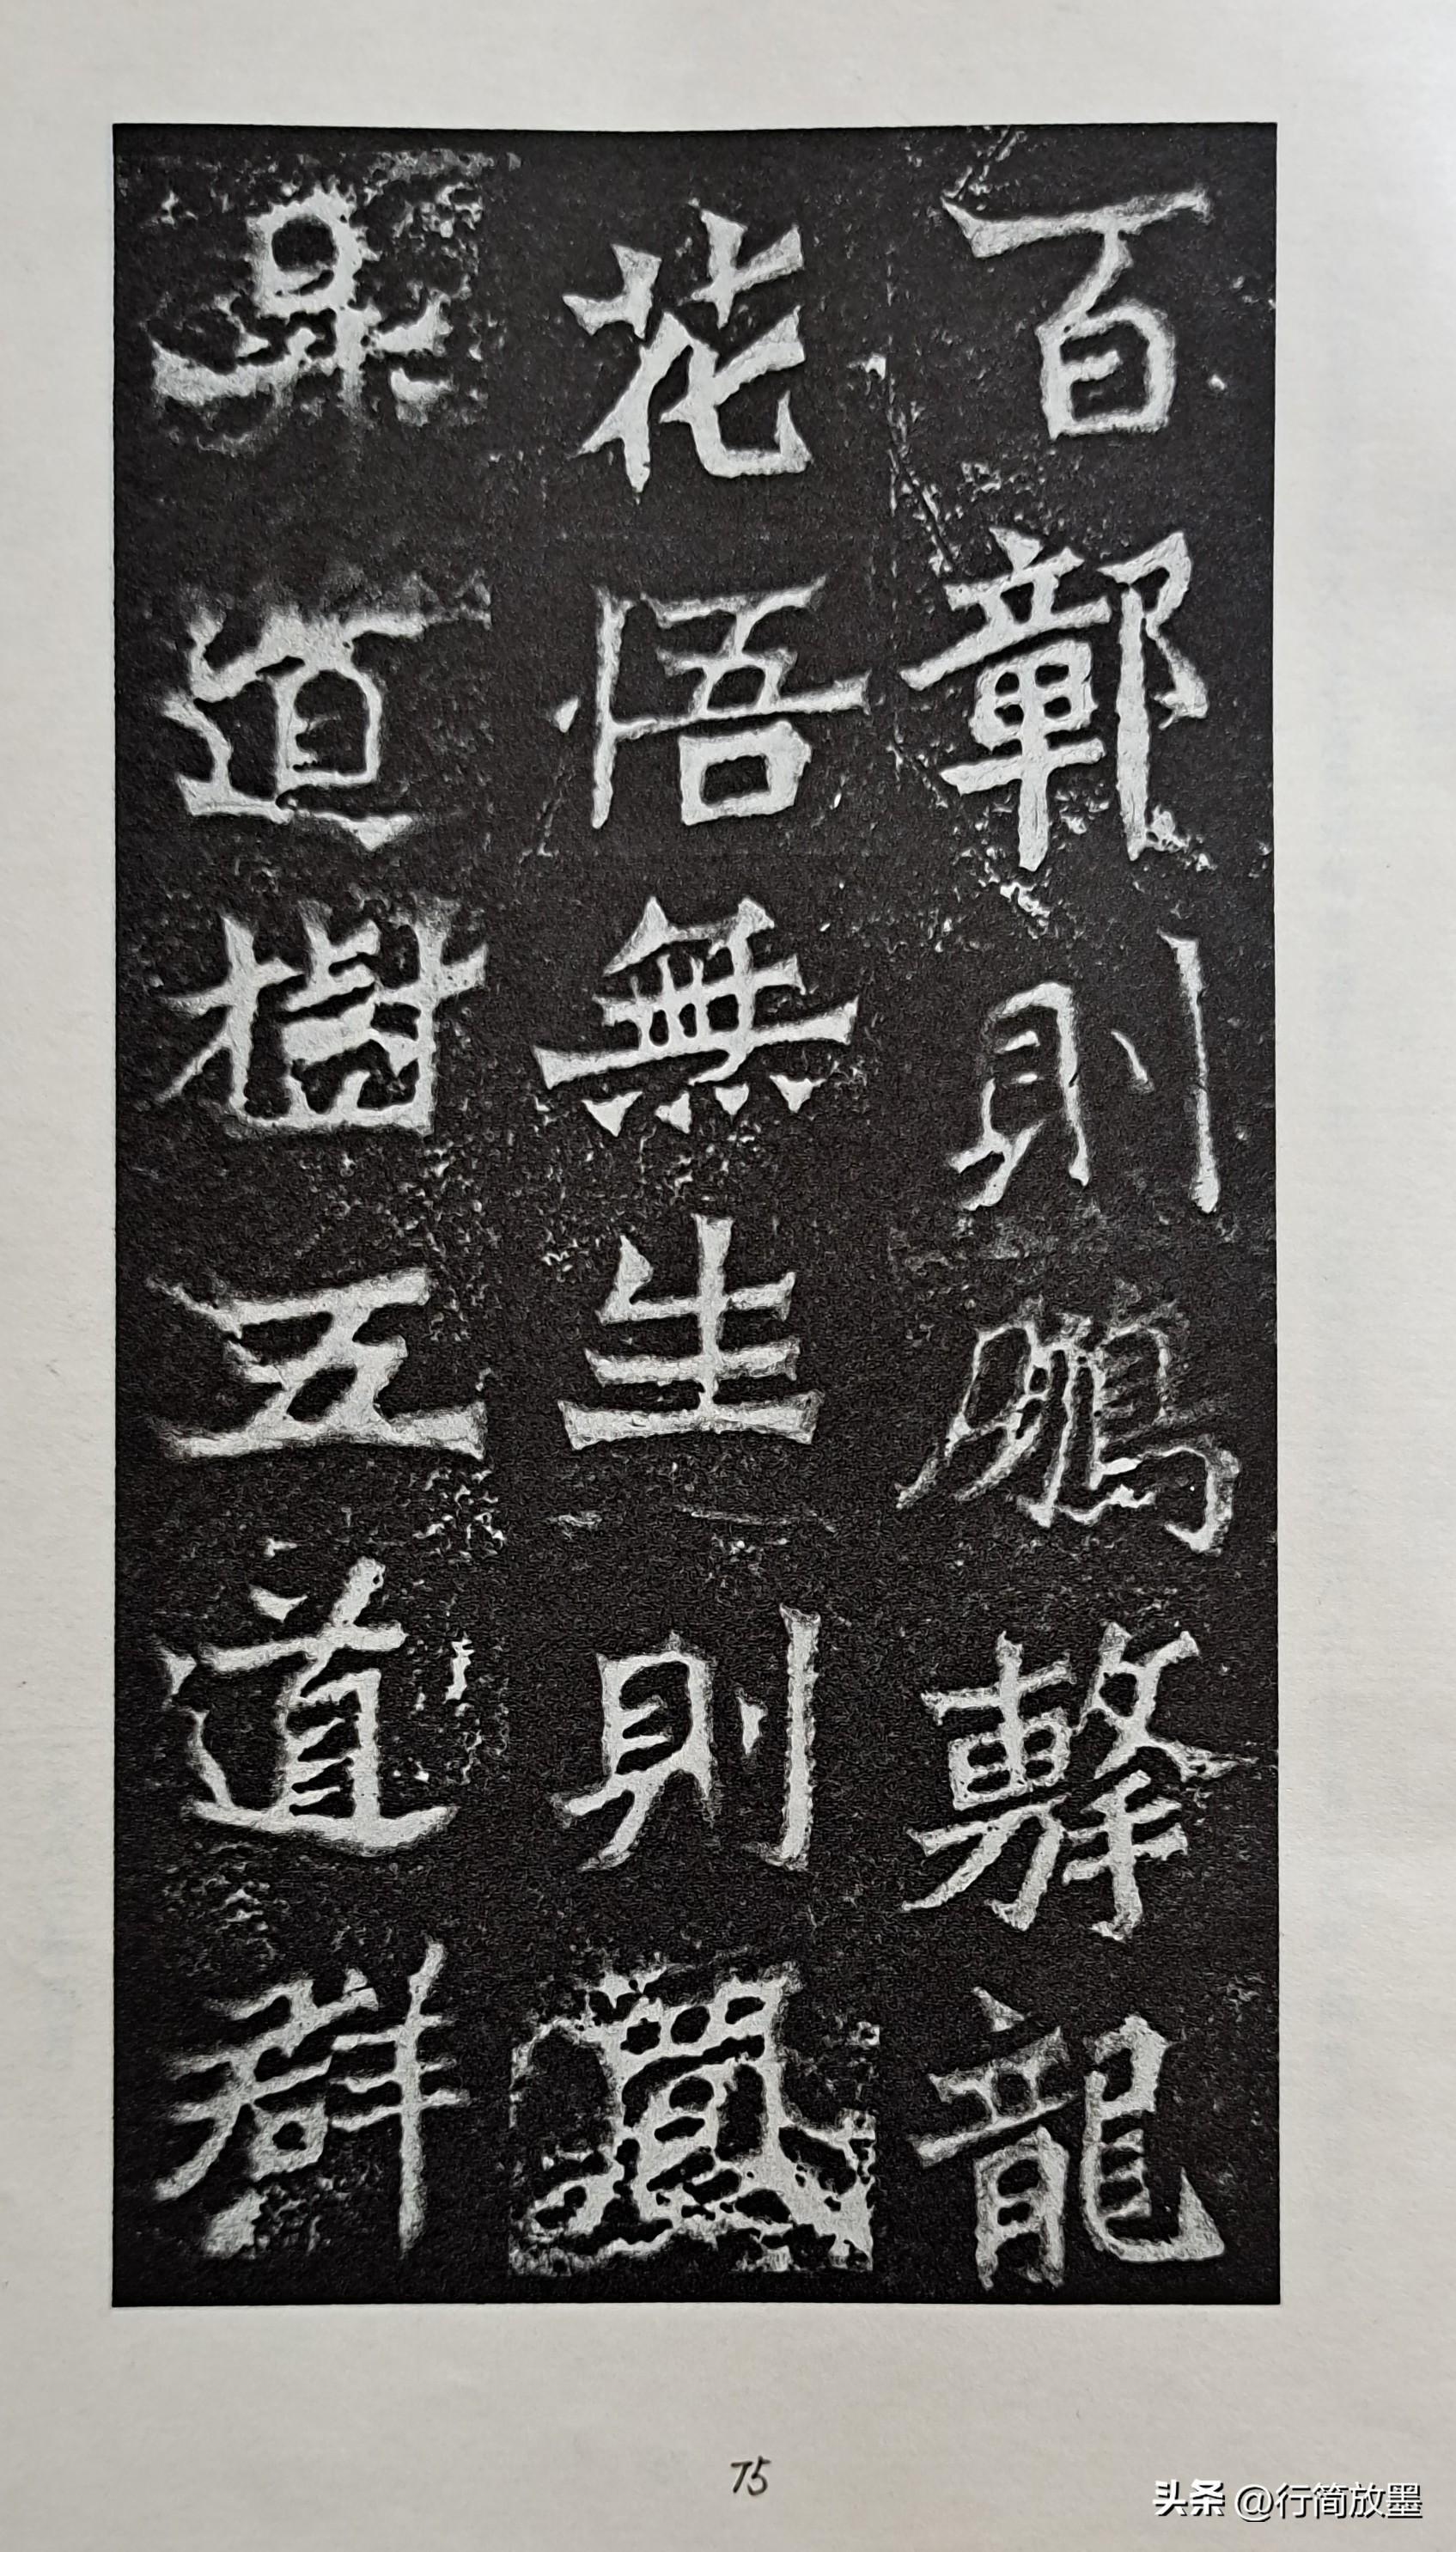 百鄣則鵰擊龍
花悟無生則鳳
果道樹五道群
75
头条 @行简放墨